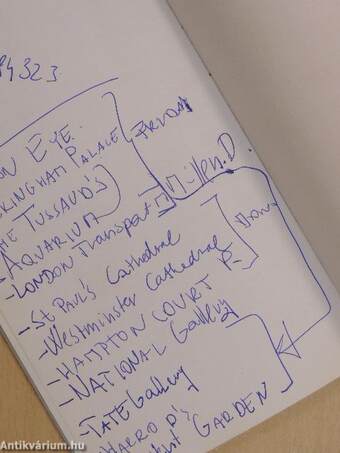 4323
ON EYE
KINGHAM PALACE
ME TUSSAUD'S
- AQUARIUM
- LONDON Transport
Millen. D.
- ST PAUL'S Cathedral
- Westminster Cathedral
- HAMPTON COURT P.
- NATIONAL Gallery
- TATE Gallery
HARROD'S
GARDEN
Antikvárium.hu